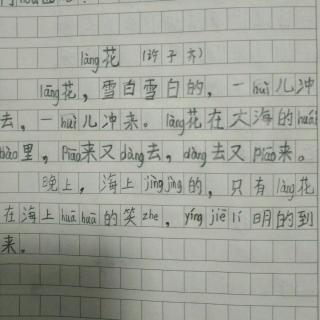 làng花 (许子齐)
làng花，雪白雪白的，一huì儿冲
去，一huì儿冲来。làng花在大海的huái
bào里，piāo来又dàng去，dàng去又piāo来。
晚上，海上jìngjìng的，只有làng花
在海上huā huā的笑zhe，yíng jiē lí明的到
来。